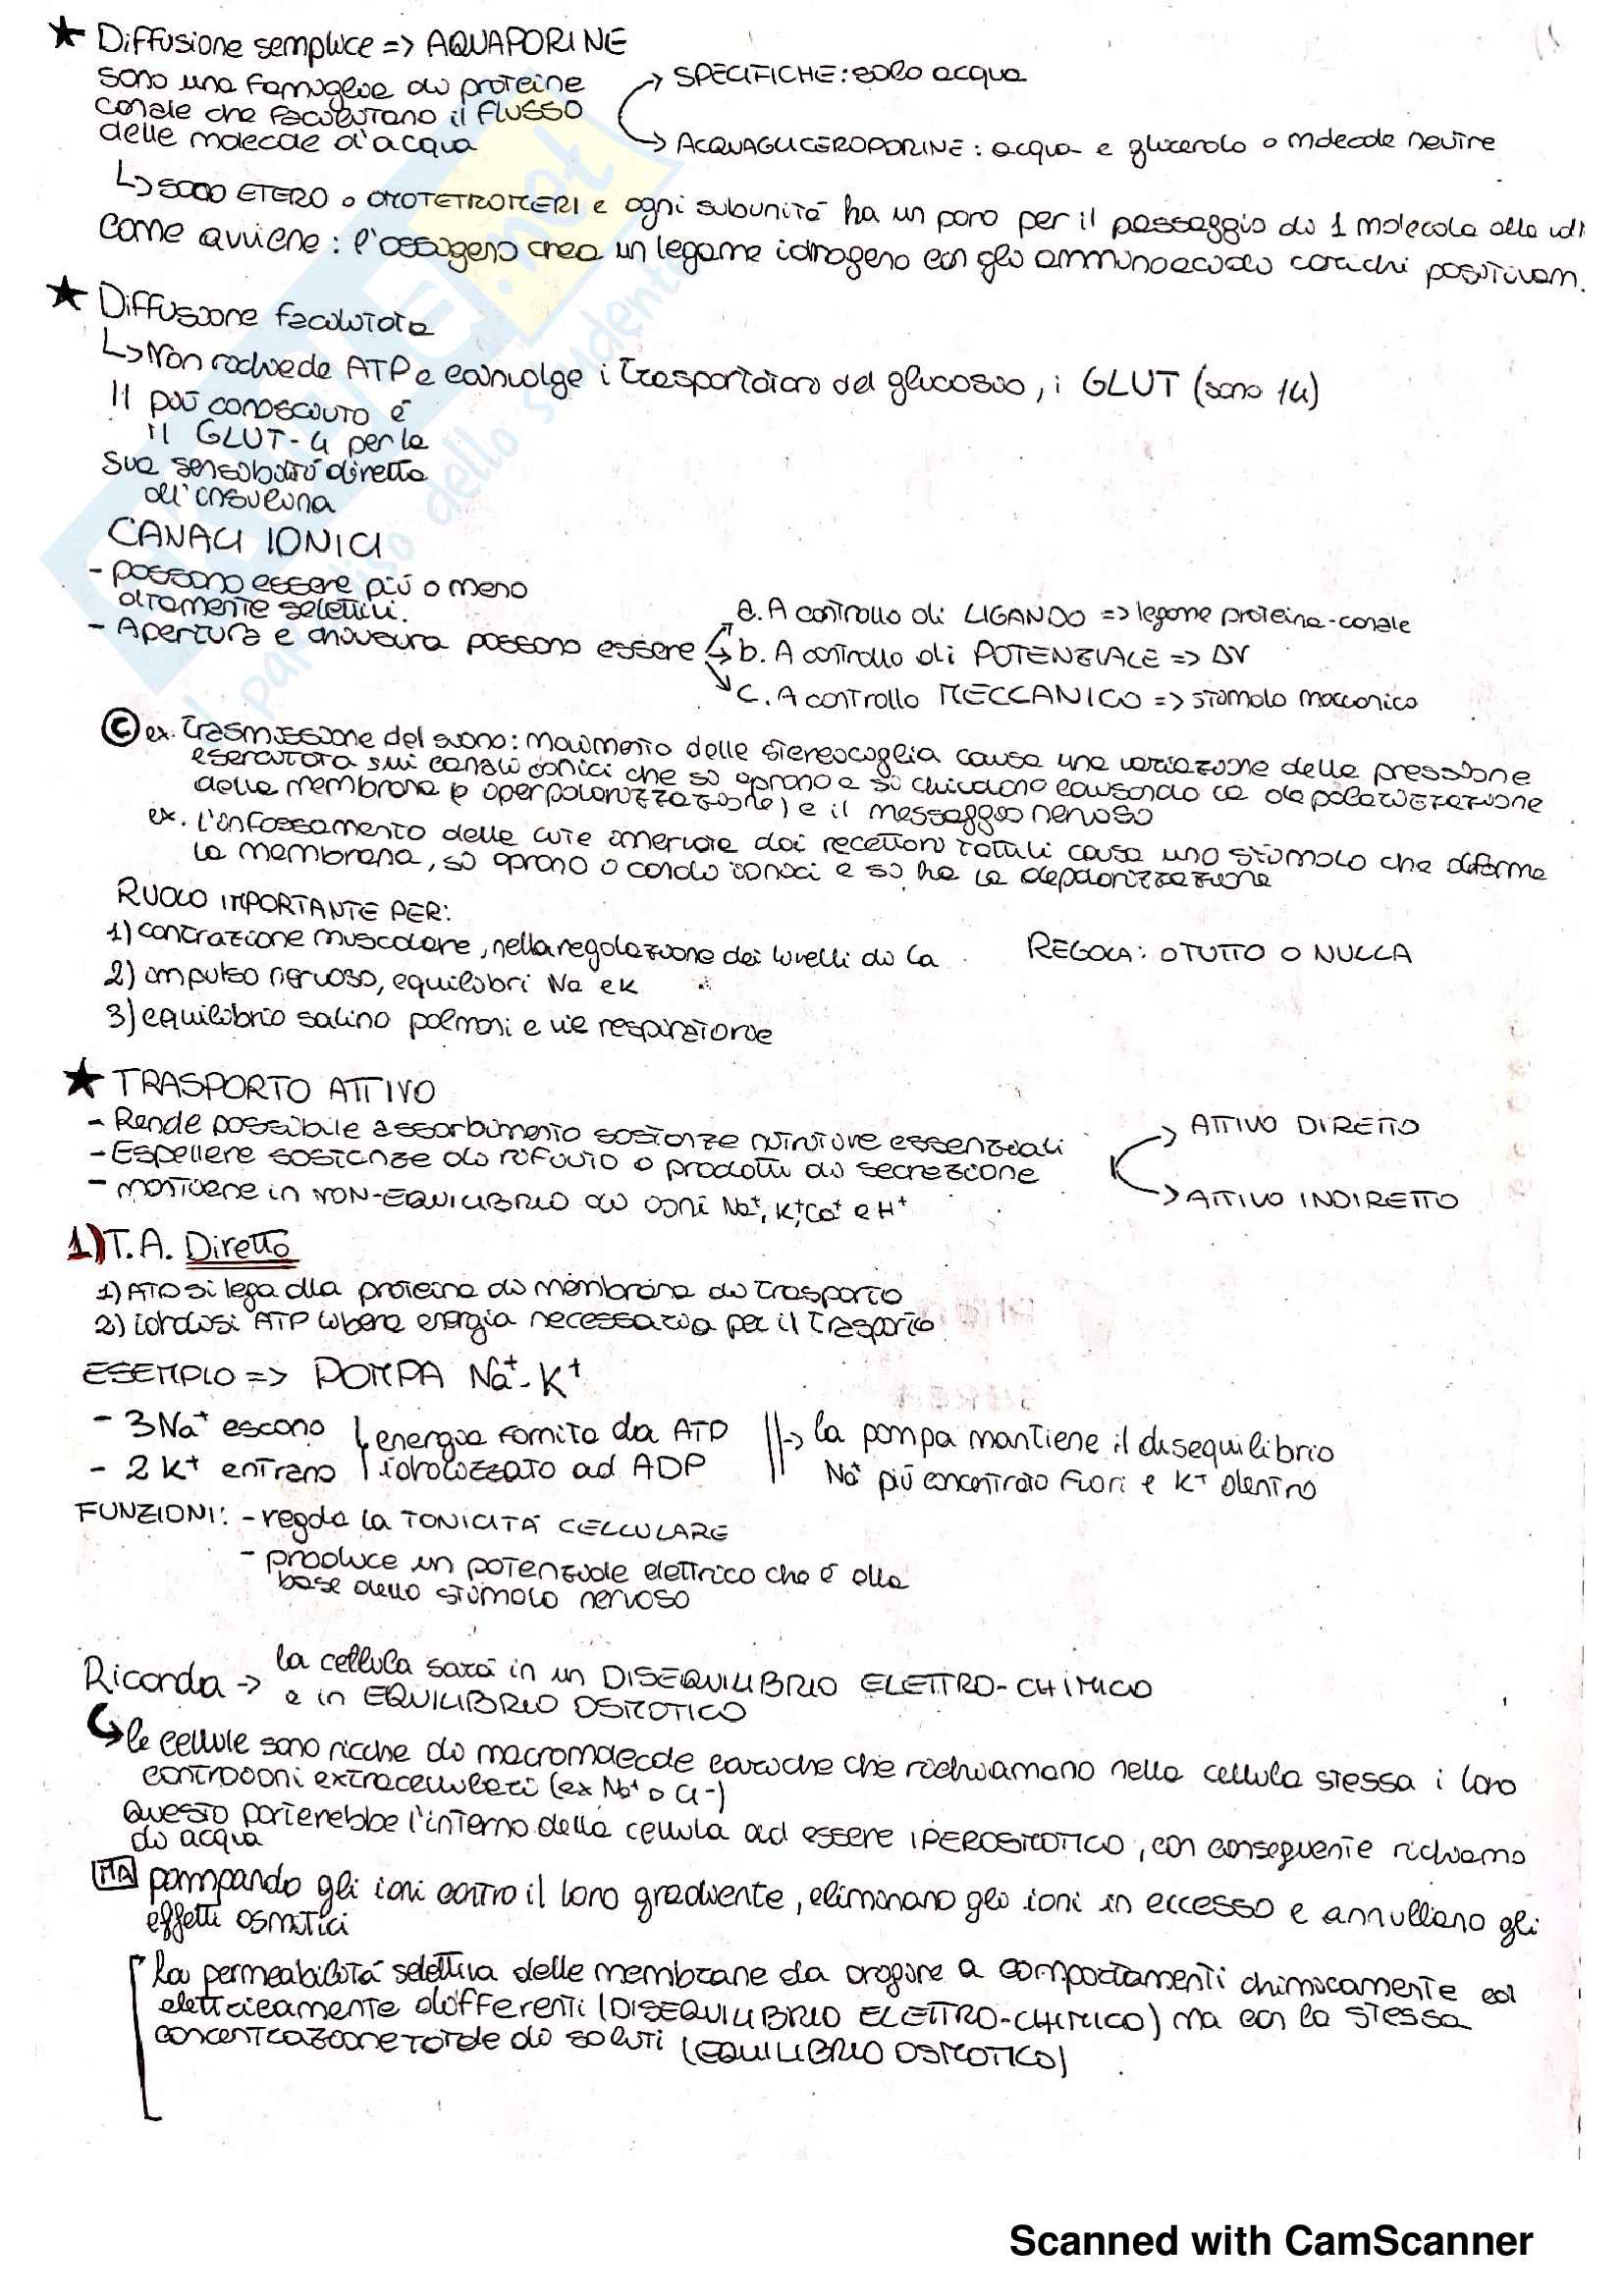 ★ Diffusione semplice => AQUAPORINE
sono una famiglia di proteine
canale che facilitano il FLUSSO
delle molecole d'acqua
SPECIFICHE: solo acqua
ACQUAGLICEROPORINE: acqua e glicerolo o molecole neutre
↳ sono ETERO o OMOTETRAMERI e ogni subunità ha un poro per il passaggio di 1 molecola alla
come avviene: l'ossigeno crea un legame idrogeno con gli amminoacidi carichi positivam.
★ Diffusione facilitata
↳ Non richiede ATP e coinvolge i trasportatori del glucosio, i GLUT (sono 14)
Il più conosciuto è
il GLUT-4 per la
sua sensibilità diretta
all'insulina
CANALI IONICI
- possono essere più o meno
altamente selettivi.
- Apertura e chiusura possono essere
a. A controllo di LIGANDO => legame proteina-canale
b. A controllo di POTENZIALE => ΔV
c. A controllo MECCANICO => stimolo meccanico
© ex. Trasmissione del suono: movimento delle stereociglia causa una variazione della pressione
esercitata sui canali ionici che si aprono e si chiudono causando la depolarizzazione
della membrana (e iperpolarizzazione) e il messaggio nervoso
ex. l'infossamento della cute dai recettori tattili causa uno stimolo che deforma
la membrana, si aprono i canali ionici e si ha la depolarizzazione
RUOLO IMPORTANTE PER:
1) contrazione muscolare, nella regolazione dei livelli di Ca
2) impulso nervoso, equilibri Na e K
3) equilibrio salino polmoni e vie respiratorie
REGOLA: O TUTTO O NULLA
★ TRASPORTO ATTIVO
- Rende possibile assorbimento sostanze nutritive essenziali
- Espellere sostanze di rifiuto o prodotti di secrezione
- mantiene in NON-EQUILIBRIO di ioni Na⁺, K⁺, Ca⁺ e H⁺
ATTIVO DIRETTO
ATTIVO INDIRETTO
1) T.A. Diretto
1) ATP si lega alla proteina di membrana di trasporto
2) idrolisi ATP libera energia necessaria per il trasporto
ESEMPIO => POMPA Na⁺-K⁺
- 3Na⁺ escono
- 2K⁺ entrano
energia fornita da ATP
idrolizzato ad ADP
-> la pompa mantiene il disequilibrio
Na⁺ più concentrato fuori e K⁺ dentro
FUNZIONI: - regola la TONICITÀ CELLULARE
- produce un potenziale elettrico che è alla
base dello stimolo nervoso
Ricorda -> la cellula sarà in un DISEQUILIBRIO ELETTRO-CHIMICO
e in EQUILIBRIO OSMOTICO
↳ le cellule sono ricche di macromolecole cariche che richiamano nella cellula stessa i loro
controioni extracellulari (ex Na⁺ o Cl-)
questo porterebbe l'interno della cellula ad essere IPEROSMOTICO, con conseguente richiamo
di acqua
MA pompando gli ioni contro il loro gradiente, eliminano gli ioni in eccesso e annullano gli
effetti osmotici
La permeabilità selettiva delle membrane da origine a compartimenti chimicamente ed
elettricamente differenti (DISEQUILIBRIO ELETTRO-CHIMICO) ma con la stessa
concentrazione totale di soluti (EQUILIBRIO OSMOTICO)
Scanned with CamScanner